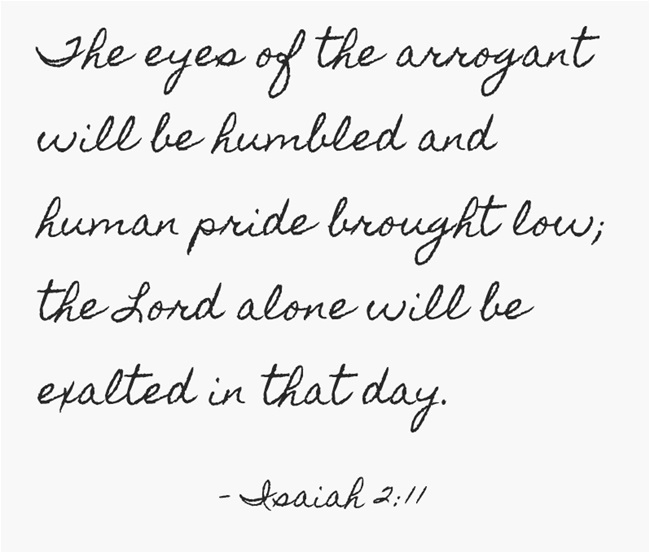 The eyes of the arrogant
will be humbled and
human pride brought low;
the Lord alone will be
exalted in that day.
- Isaiah 2:11